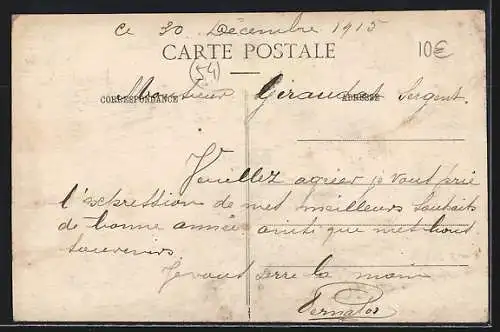 Ce 30 Décembre 1915
CARTE POSTALE
10€
54
CORRESPONDANCE
ADRESSE
Monsieur Sergent.
Veuillez agréer je vout prie
l'expression de met meilleurs souhaits
de bonne année ainti que met bont
souvenirs
Je vout serre la main